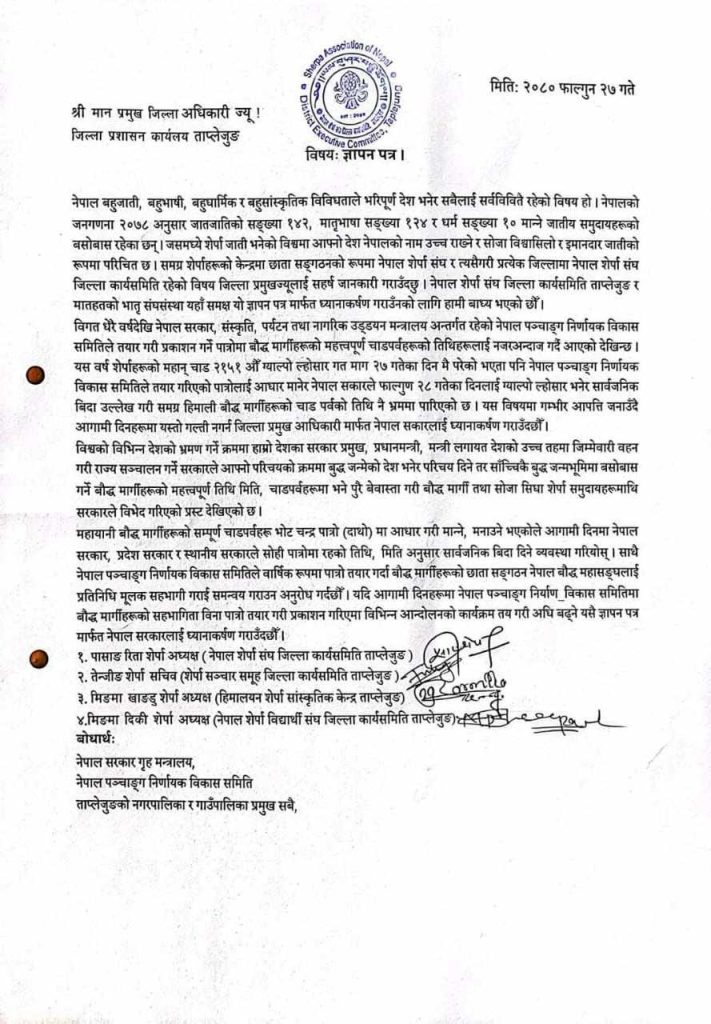 Sherpa Association of Nepal
District Executive Committee, Taplejung
मितिः २०८० फाल्गुन २७ गते
श्री मान प्रमुख जिल्ला अधिकारी ज्यू !
जिल्ला प्रशासन कार्यलय ताप्लेजुङ
विषयः ज्ञापन पत्र ।
नेपाल बहुजाती, बहुभाषी, बहुधार्मिक र बहुसांस्कृतिक विविधताले भरिपूर्ण देश भनेर सबैलाई सर्वविवितै रहेको विषय हो । नेपालको
जनगणना २०७८ अनुसार जातजातिको सङ्ख्या १४२, मातृभाषा सङ्ख्या १२४ र धर्म सङ्ख्या १० मान्ने जातीय समुदायहरूको
बसोबास रहेका छन् । जसमध्ये शेर्पा जाती भनेको विश्वमा आफ्नो देश नेपालको नाम उच्च राख्ने र सोजा विश्वासिलो र इमानदार जातीको
रूपमा परिचित छ । समग्र शेर्पाहरूको केन्द्रमा छाता सङ्गठनको रूपमा नेपाल शेर्पा संघ र त्यसैगरी प्रत्येक जिल्लामा नेपाल शेर्पा संघ
जिल्ला कार्यसमिति रहेको विषय जिल्ला प्रमुखज्यूलाई सहर्ष जानकारी गराउदछु । नेपाल शेर्पा संघ जिल्ला कार्यसमिति ताप्लेजुङ र
मातहतको भातृ संघसंस्था यहाँ समक्ष यो ज्ञापन पत्र मार्फत ध्यानाकर्षण गराउँनको लागि हामी बाध्य भएको छौँ ।
विगत धेरै वर्षदेखि नेपाल सरकार, संस्कृति, पर्यटन तथा नागरिक उड्डयन मन्त्रालय अन्तर्गत रहेको नेपाल पञ्चाङ्ग निर्णायक विकास
समितिले तयार गरी प्रकाशन गर्ने पात्रोमा बौद्ध मार्गीहरूको महत्त्वपूर्ण चाडपर्वको तिथिहरूलाई नजरअन्दाज गर्दै आएको देखिन्छ ।
यस वर्ष शेर्पाहरूको महान् चाड २१५१ औँ ग्याल्पो ल्होसार गत माग २७ गतेका दिन मै परेको भएता पनि नेपाल पञ्चाङ्ग निर्णायक
विकास समितिले तयार गरिएको पात्रोलाई आधार मानेर नेपाल सकारले फाल्गुण २८ गतेका दिनलाई ग्याल्पो ल्होसर भनेर सार्वजनिक
बिदा उल्लेख गरी समग्र हिमाली बौद्ध मार्गीहरूको चाड पर्वको तिथि नै भ्रममा पारिएको छ । यस विषयमा गम्भीर आपत्ति जनाउँदै
आगामी दिनहरूमा यस्तो गल्ती नगर्न जिल्ला प्रमुख आधिकारी मार्फत नेपाल सकारलाई ध्यानाकर्षण गराउँदछौँ ।
विश्वको विभिन्न देशको भ्रमण गर्ने क्रममा हाम्रो देशका सरकार प्रमुख, प्रधानमन्त्री, मन्त्री लगायत देशको उच्च तहमा जिम्मेवारी वहन
गरी राज्य सञ्चालन गर्ने सरकारले आफ्नो परिचयको क्रममा बुद्ध जन्मेको देश भनेर परिचय दिने तर साँच्चिकै बुद्ध जन्मभूमिमा बसोबास
गर्ने बौद्ध मार्गीहरूको महत्त्वपूर्ण तिथि मिति, चाडपर्वहरूमा भने पुरै बेवास्ता गरी बौद्ध मार्गी तथा सोजा सिधा शेर्पा समुदायहरूमाथि
सरकारले विभेद गरिएको प्रस्ट देखिएको छ ।
महायानी बौद्ध मार्गीहरूको सम्पूर्ण चाडपर्वहरू भोट चन्द्र पात्रो (दाथो) मा आधार गरी मान्ने, मनाउने भएकोले आगामी दिनमा नेपाल
सरकार, प्रदेश सरकार र स्थानीय सरकारले सोही पात्रोमा रहको तिथि, मिति अनुसार सार्वजनिक बिदा दिने व्यवस्था गरियोस् । साथै
नेपाल पञ्चाङ्ग निर्णायक विकास समितिले वार्षिक रूपमा पात्रो तयार गर्दा बौद्ध मार्गीहरूको छाता सङ्गठन नेपाल बौद्ध महासङ्घलाई
प्रतिनिधि मूलक सहभागी गराई समन्वय गराउन अनुरोध गर्दछौँ । यदि आगामी दिनहरूमा नेपाल पञ्चाङ्ग निर्माण_विकास समितिमा
बौद्ध मार्गीहरूको सहभागिता विना पात्रो तयार गरी प्रकाशन गरिएमा विभिन्न आन्दोलनको कार्यक्रम तय गरी अघि बढ्ने यसै ज्ञापन पत्र
मार्फत नेपाल सरकारलाई ध्यानाकर्षण गराउँदछौँ ।
१. पासाङ रिता शेर्पा अध्यक्ष ( नेपाल शेर्पा संघ जिल्ला कार्यसमिति ताप्लेजुङ )
२. तेन्जीङ शेर्पा सचिव (शेर्पा सञ्चार समूह जिल्ला कार्यसमिति ताप्लेजुङ )
३. मिङमा खाङडु शेर्पा अध्यक्ष (हिमालयन शेर्पा सांस्कृतिक केन्द्र ताप्लेजुङ)
४.मिङमा दिकी शेर्पा अध्यक्ष (नेपाल शेर्पा विद्यार्थी संघ जिल्ला कार्यसमिति ताप्लेजुङ)
बोधार्थः
नेपाल सरकार गृह मन्त्रालय,
नेपाल पञ्चाङ्ग निर्णायक विकास समिति
ताप्लेजुङको नगरपालिका र गाउँपालिका प्रमुख सबै,